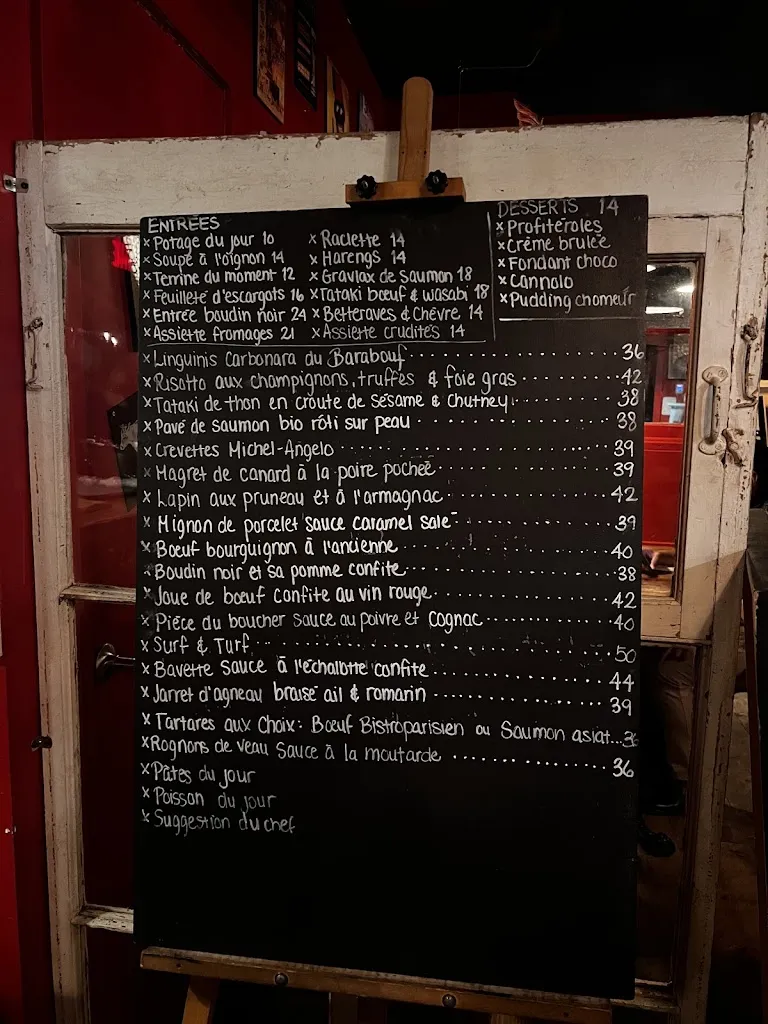 ENTRÉES
x Potage du jour 10
x Soupe à l'oignon 14
x Terrine du moment 12
x Feuilleté d'escargots 16
x Entrée boudin noir 24
x Assiette fromages 21
x Raclette 14
x Harengs 14
x Gravlax de Saumon 18
x Tataki bœuf & wasabi 18
x Betteraves & Chèvre 14
x Assiette crudités 14
DESSERTS 14
x Profiteroles
x Crème brulée
x Fondant choco
x Cannolo
x Pudding chomeur
x Linguinis Carbonara du Barabouf 36
x Risotto aux champignons, truffes & foie gras 42
x Tataki de thon en croute de sésame & Chutney 38
x Pavé de saumon bio rôti sur peau 38
x Crevettes Michel-Angelo 39
x Magret de canard à la poire pochée 39
x Lapin aux pruneau et à l'armagnac 42
x Mignon de porcelet sauce caramel salé 39
x Bœuf bourguignon à l'ancienne 40
x Boudin noir et sa pomme confite 38
x Joue de bœuf confite au vin rouge 42
x Pièce du boucher sauce au poivre et Cognac 40
x Surf & Turf 50
x Bavette Sauce à l'échalotte confite 44
x Jarret d'agneau braisé ail & romarin 39
x Tartares aux Choix: Bœuf Bistroparisien ou Saumon asiat...
x Rognons de veau Sauce à la moutarde 36
x Pâtes du jour
x Poisson du jour
x Suggestion du chef